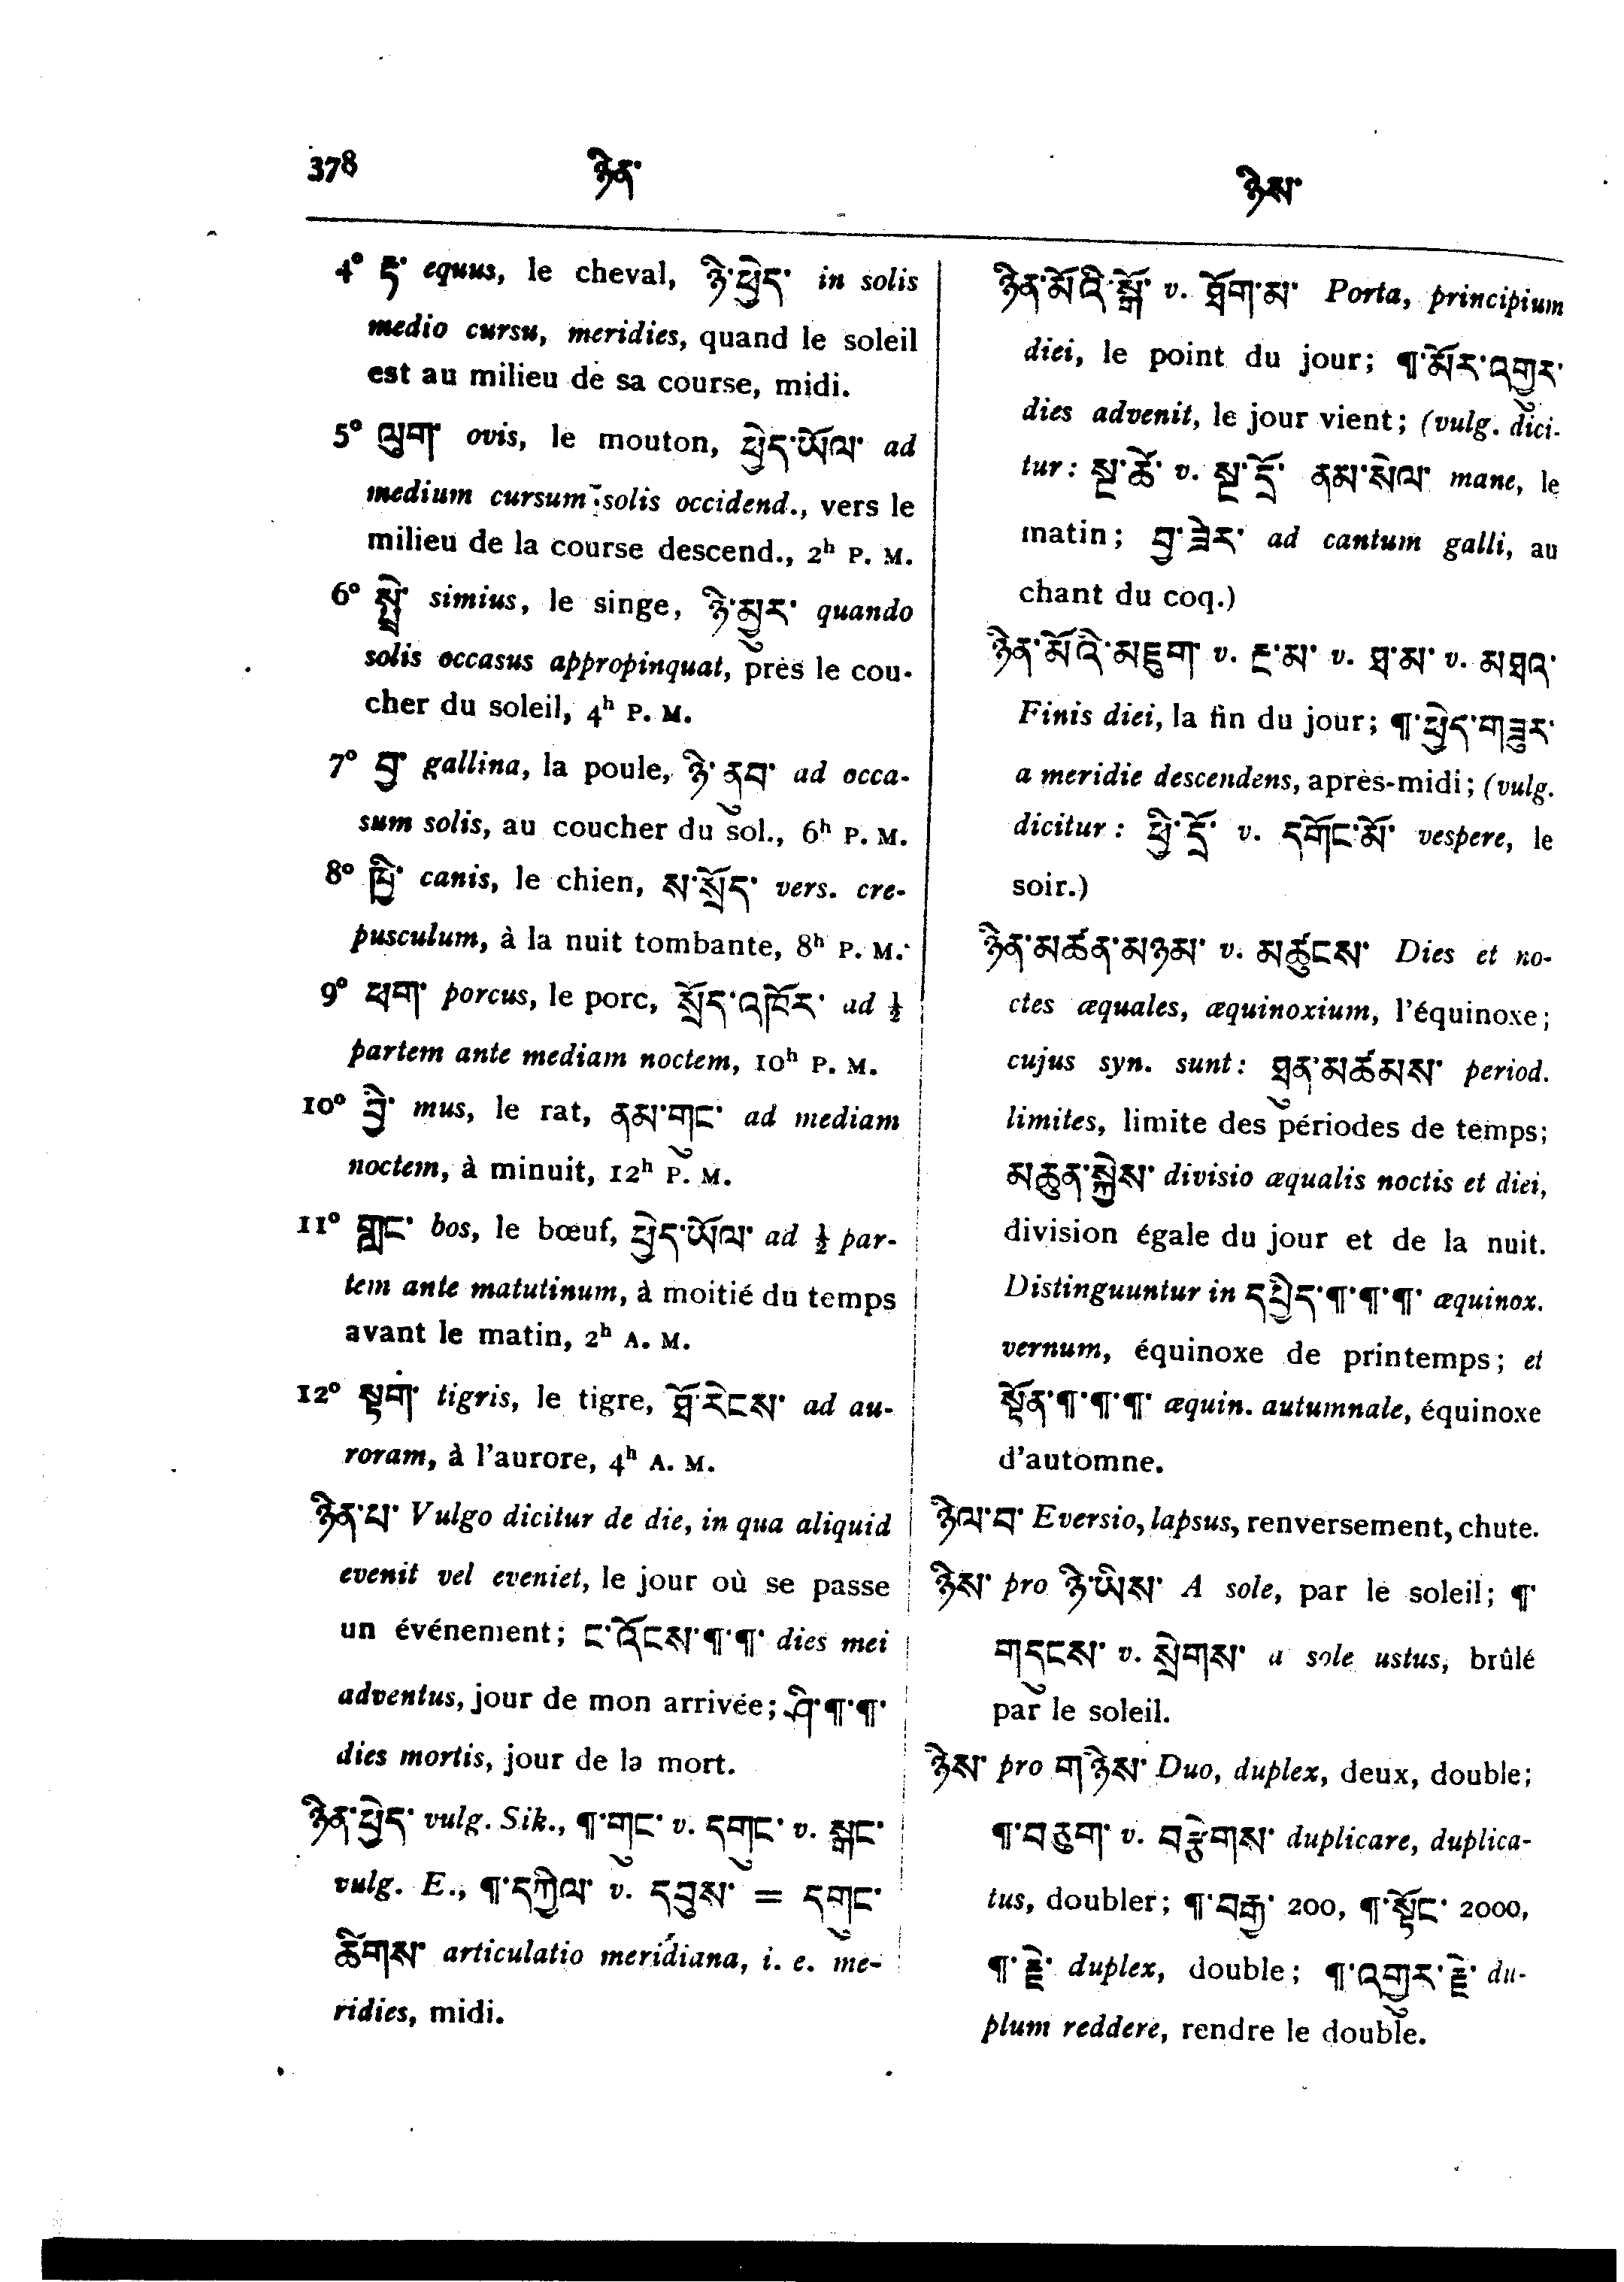 378 ཉིན་ ཉིས་
4° རྟ་ equus, le cheval, ཉི་ཕྱེད་ in solis
medio cursu, meridies, quand le soleil
est au milieu de sa course, midi.
5° ལུག་ ovis, le mouton, ཕྱེད་ཡོལ་ ad
medium cursum solis occidend., vers le
milieu de la course descend., 2ʰ P. M.
6° སྤྲེ་ simius, le singe, ཉི་མྱུར་ quando
solis occasus appropinquat, près le cou-
cher du soleil, 4ʰ P. M.
7° བྱ་ gallina, la poule, ཉི་ནུབ་ ad occa-
sum solis, au coucher du sol., 6ʰ P. M.
8° ཁྱི་ canis, le chien, ས་སྲོད་ vers. cre-
pusculum, à la nuit tombante, 8ʰ P. M.
9° ཕག་ porcus, le porc, སྲོད་འཁོར་ ad ½
partem ante mediam noctem, 10ʰ P. M.
10° བྱི་ mus, le rat, ནམ་གུང་ ad mediam
noctem, à minuit, 12ʰ P. M.
11° གླང་ bos, le bœuf, ཕྱེད་ཡོལ་ ad ½ par-
tem ante matutinum, à moitié du temps
avant le matin, 2ʰ A. M.
12° སྟག་ tigris, le tigre, ཐོ་རེངས་ ad au-
roram, à l'aurore, 4ʰ A. M.
ཉིན་པ་ Vulgo dicitur de die, in qua aliquid
evenit vel eveniet, le jour où se passe
un événement; ང་འོངས་¶་¶་ dies mei
adventus, jour de mon arrivée; ཤི་¶་¶་
dies mortis, jour de la mort.
ཉིན་ཕྱེད་ vulg. Sik., ¶་གུང་ v. དགུང་ v. སྒང་
vulg. E., ¶་དཀྱིལ་ v. དབུས་ = དགུང་
ཚིགས་ articulatio meridiana, i. e. me-
ridies, midi.
ཉིན་མོའི་སྒོ་ v. ཐོག་མ་ Porta, principium
diei, le point du jour; ¶་མོར་འགྱུར་
dies advenit, le jour vient; (vulg. dici-
tur: སྔ་ཚོ་ v. སྔ་དྲོ་ ནམ་སེལ་ mane, le
matin; བྱ་ཟེར་ ad cantum galli, au
chant du coq.)
ཉིན་མོའི་མཇུག་ v. རྔ་མ་ v. ཐ་མ་ v. མཐའ་
Finis diei, la fin du jour; ¶་ཕྱེད་གཟུར་
a meridie descendens, après-midi; (vulg.
dicitur: ཕྱི་དྲོ་ v. དགོང་མོ་ vespere, le
soir.)
ཉིན་མཚན་མཉམ་ v. མཚུངས་ Dies et no-
ctes æquales, æquinoxium, l'équinoxe;
cujus syn. sunt: ཐུན་མཚམས་ period.
limites, limite des périodes de temps;
མཆུན་སྐྱེས་ divisio æqualis noctis et diei,
division égale du jour et de la nuit.
Distinguuntur in དཔྱིད་¶་¶་¶་ æquinox.
vernum, équinoxe de printemps; et
སྟོན་¶་¶་¶་ æquin. autumnale, équinoxe
d'automne.
ཉིལ་བ་ Eversio, lapsus, renversement, chute.
ཉིས་ pro ཉི་ཡིས་ A sole, par le soleil; ¶་
གདུངས་ v. སྲེགས་ a sole ustus, brûlé
par le soleil.
ཉིས་ pro གཉིས་ Duo, duplex, deux, double;
¶་བཅུག་ v. བརྩེགས་ duplicare, duplica-
tus, doubler; ¶་བརྒྱ་ 200, ¶་སྟོང་ 2000,
¶་རྗེ་ duplex, double; ¶་འགྱུར་རྗེ་ du-
plum reddere, rendre le double.